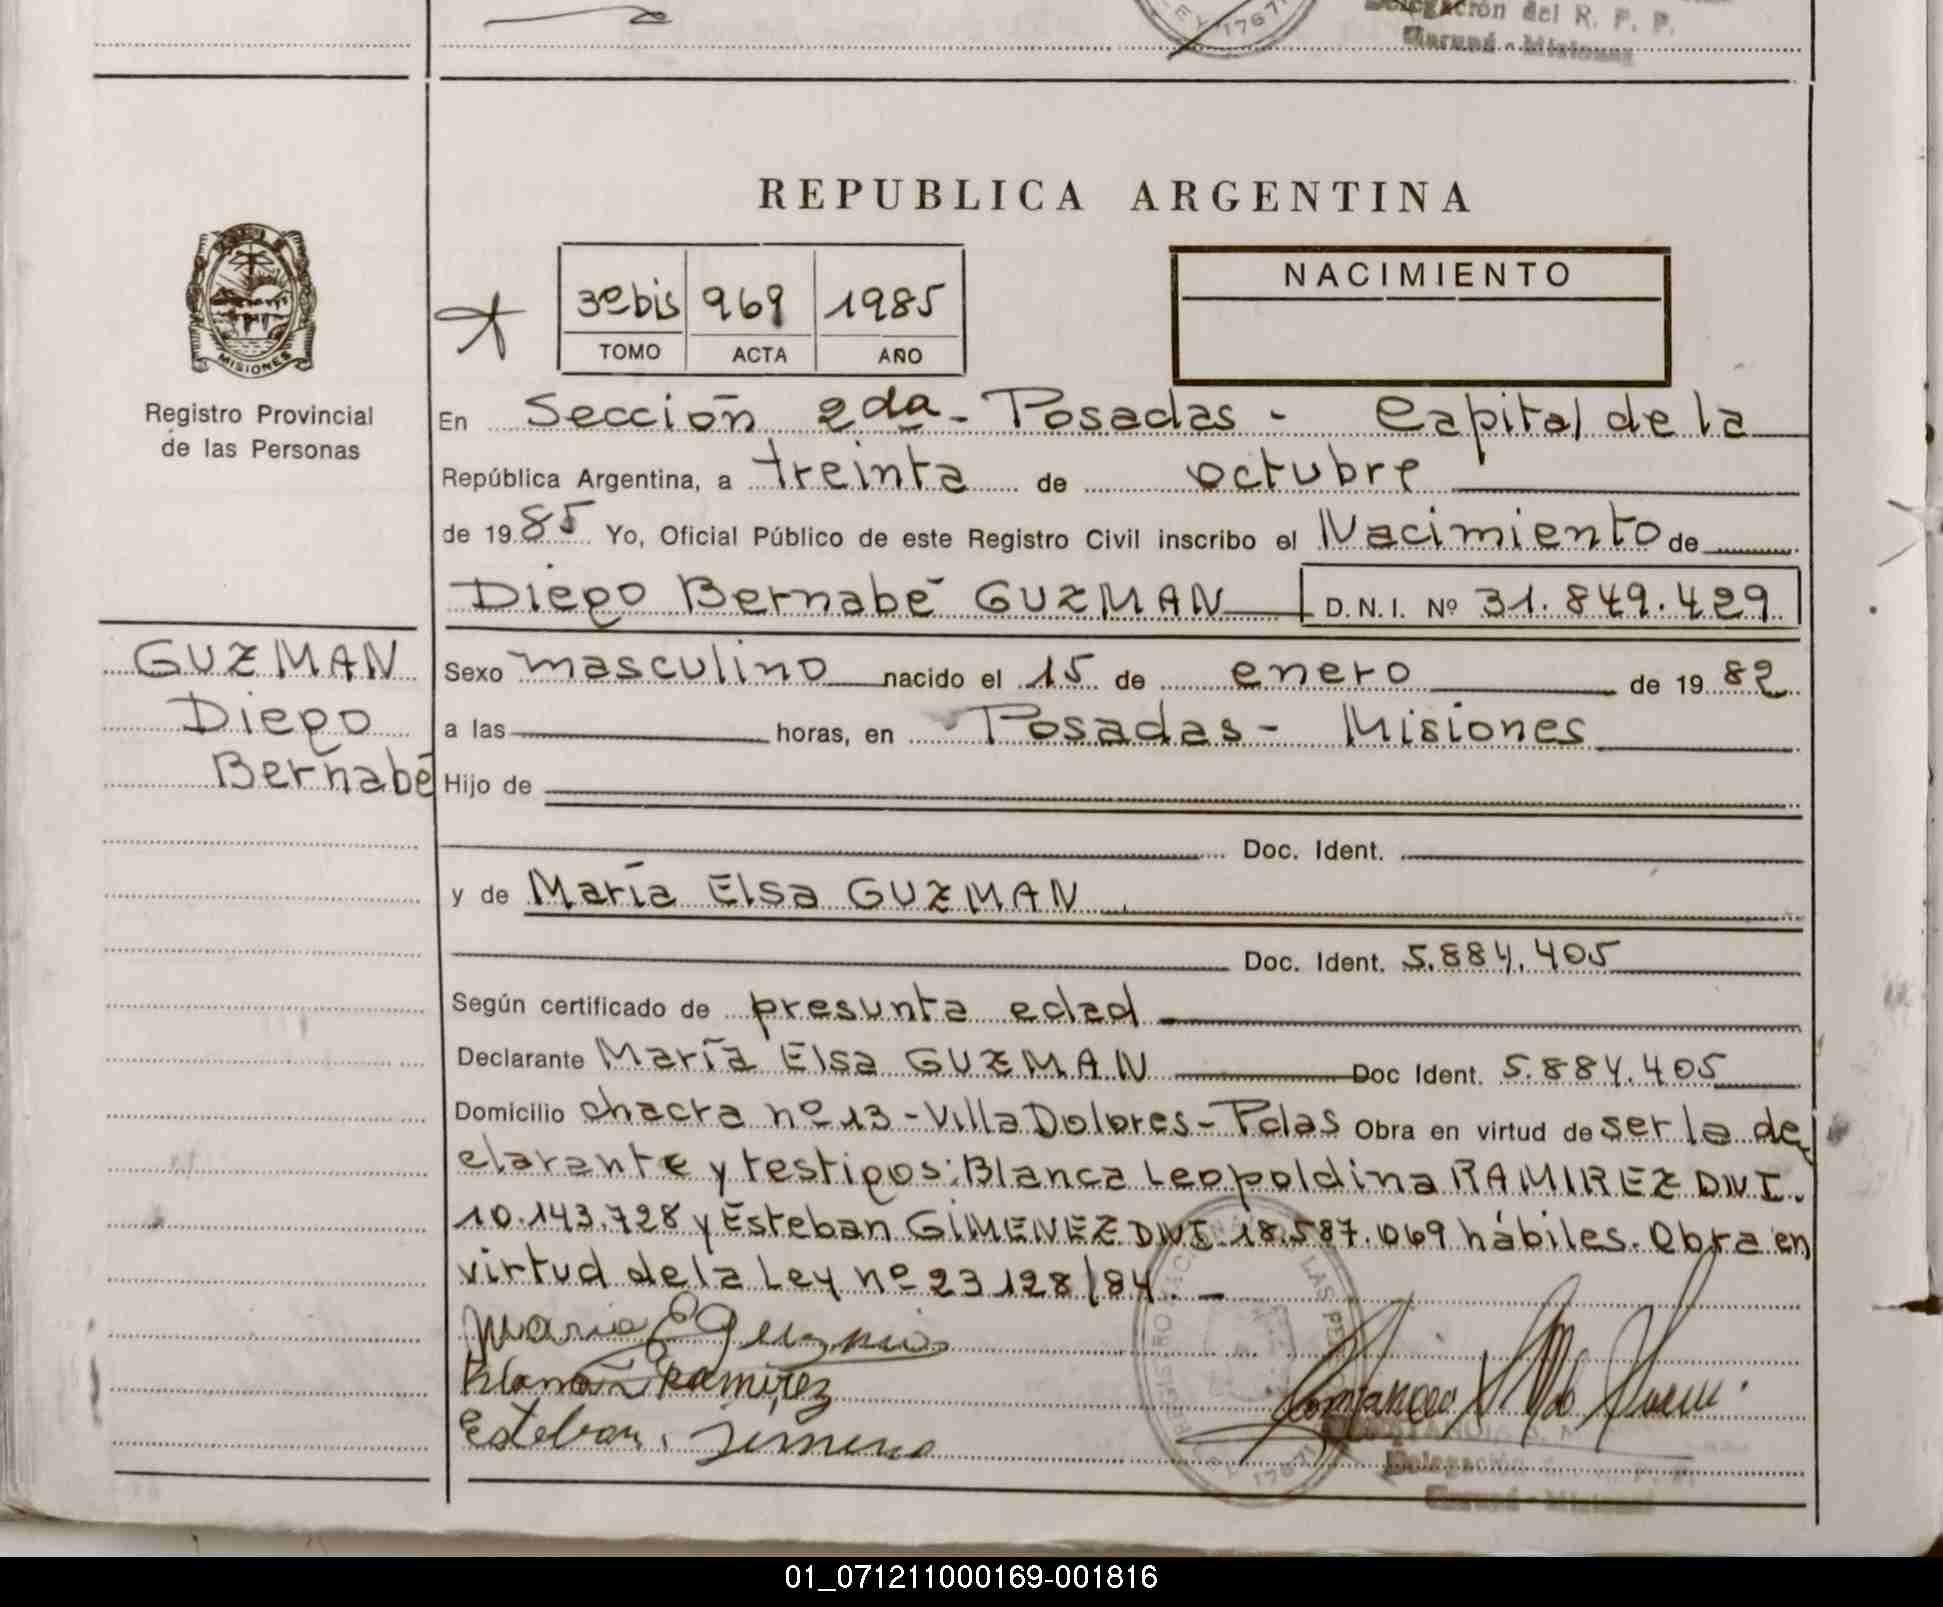 Delegación del R. P. P.
Garupá - Misiones
LEY 17671
REPUBLICA ARGENTINA
MISIONES
Registro Provincial
de las Personas
3ebis 969 1985
TOMO ACTA AÑO
NACIMIENTO
En Sección 2da - Posadas - Capital de la
República Argentina, a treinta de octubre
de 1985 Yo, Oficial Público de este Registro Civil inscribo el Nacimiento de
Diego Bernabé GUZMAN D.N.I. Nº 31.849.429
GUZMAN
Diego
Bernabé
Sexo masculino nacido el 15 de enero de 1982
a las horas, en Posadas - Misiones
Hijo de
Doc. Ident.
y de María Elsa GUZMAN
Doc. Ident. 5.884.405
Según certificado de presunta edad
Declarante María Elsa GUZMAN Doc Ident. 5.884.405
Domicilio chacra nº 13 - Villa Dolores - Pdas Obra en virtud de ser la de
clarante y testigos: Blanca Leopoldina RAMIREZ DNI.
10.143.728 y Esteban GIMENEZ DNI 18.587.069 hábiles. Obra en
virtud de la Ley nº 23128/84. -
Maria E Guzman
Blanca Ramirez
Esteban Jimenez
Delegación
Garupá - Misiones
01_071211000169-001816